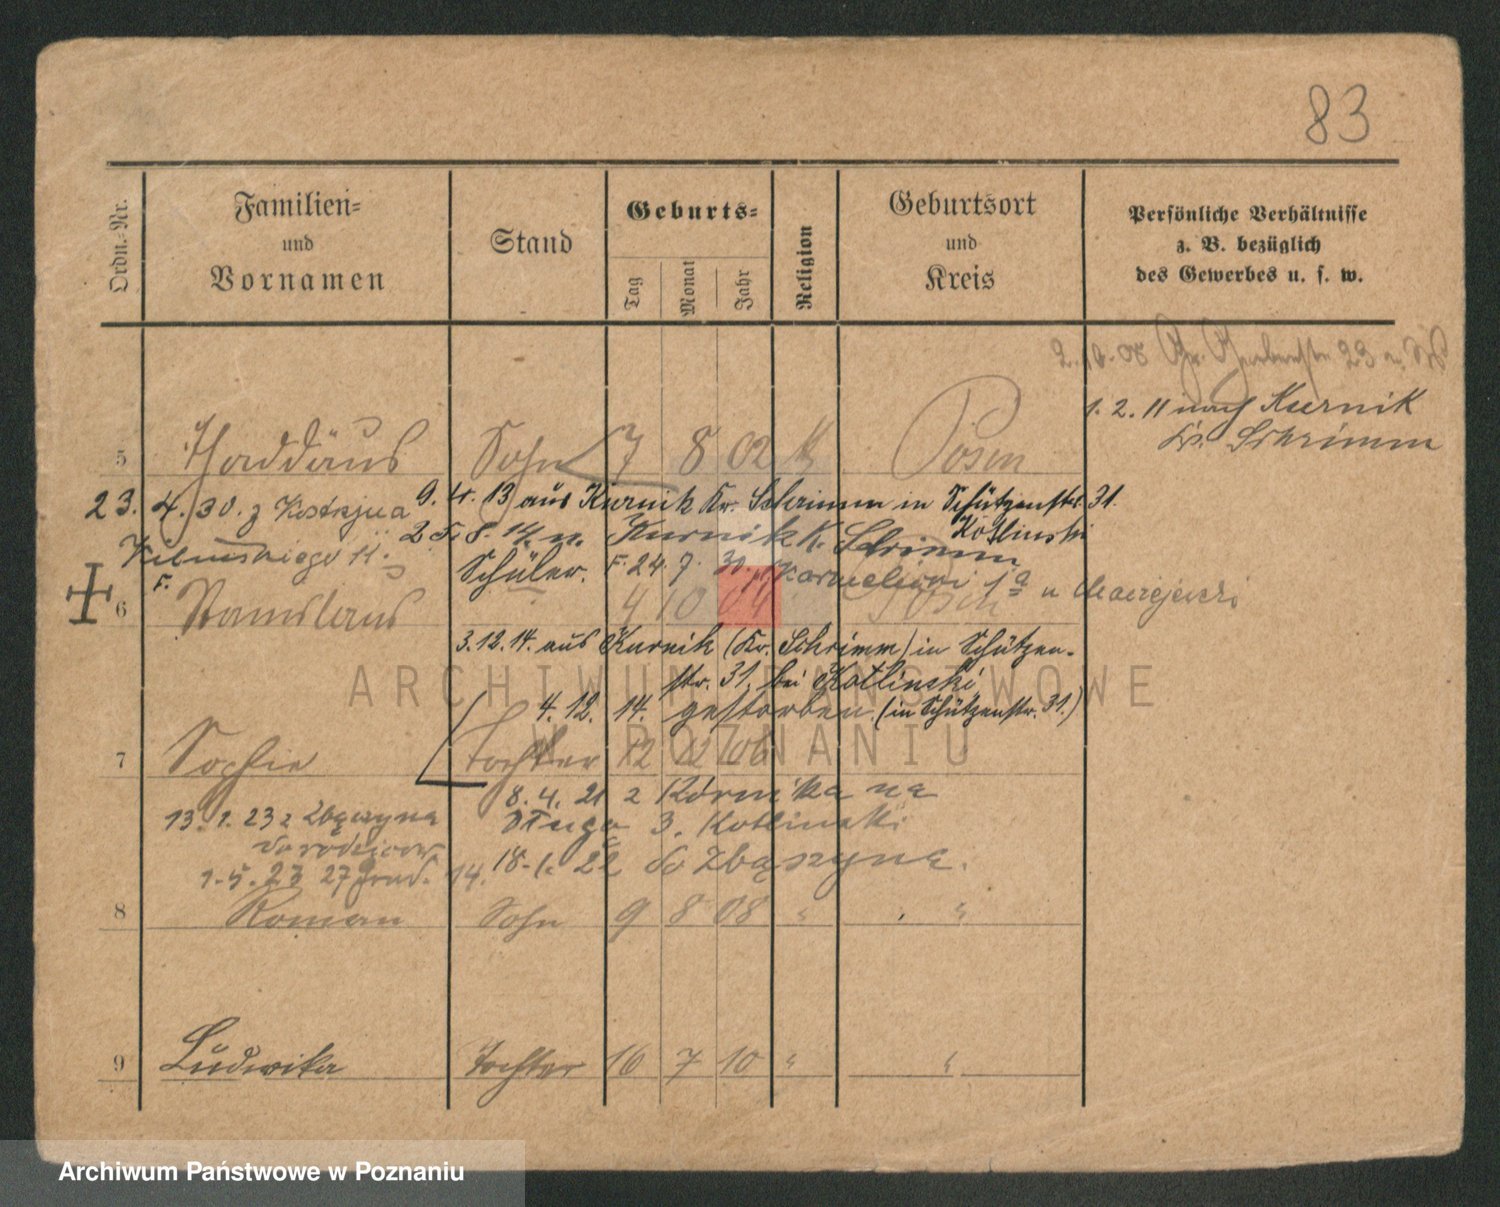 83
Ordn.-Nr.
Familien-
und
Vornamen
Stand
Geburts-
Tag
Monat
Jahr
Religion
Geburtsort
und
Kreis
Persönliche Verhältnisse
z. B. bezüglich
des Gewerbes u. s. w.
2.10.08 Gr. Gerberstr. 23
1. 2. 11 nach Kurnik
Kr. Schrimm
5 Thaddäus Sohn 7 8 02 K Posen
23. 4. 30. z Kostrzyna
9. 4. 13 aus Kurnik Kr. Schrimm in Schützenstr. 31.
Kotlinski
25. 8. 14. n. Kurnik K. Schrimm
11.
Schüler. F. 24. 7.
F.
6 Stanislaus 4 10 04 Posen
3.12.14. aus Kurnik (Kr. Schrimm) in Schützen-
str. 31. bei Kotlinski
4. 12. 14. gestorben. (in Schützenstr. 31.)
7 Sophie Tochter 12 06
13. 1. 23 z Zbąszyna
8. 4. 21 z Kórnika na
Długa 3. Kotlinski
18. 22 do Zbąszyna.
1.5.23 27
14.
8 Roman Sohn 9 8 08 " "
9 Ludwika Tochter 16 7 10 " "
ARCHIWUM PAŃSTWOWE
W POZNANIU
Archiwum Państwowe w Poznaniu